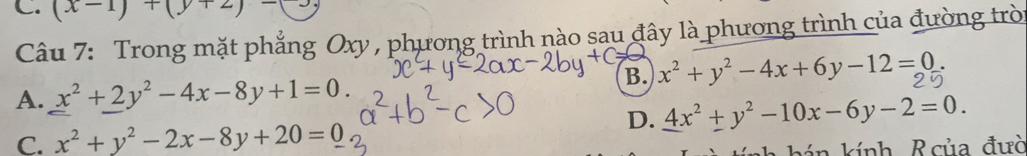 C. (x−1) +(y+2) =
Câu 7: Trong mặt phẳng Oxy, phương trình nào sau đây là phương trình của đường tròn
x²+y²−2ax−2by+c=0
A. x²+2y²−4x−8y+1=0.
B. x²+y²−4x+6y−12=0.
25
a²+b²−c>0
C. x²+y²−2x−8y+20=0.
−3
D. 4x²+y²−10x−6y−2=0.
tính bán kính R của đườ